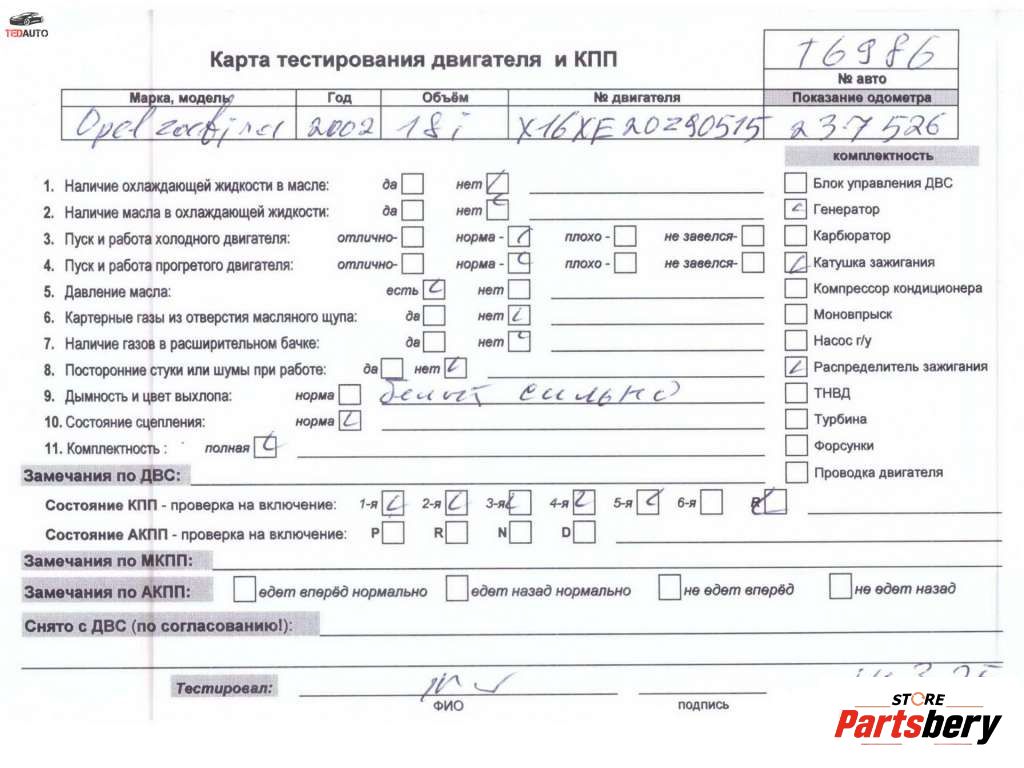 TEDAUTO
Карта тестирования двигателя и КПП
T6986
№ авто
Марка, модель Год Объём № двигателя Показание одометра
Opel zafira 2002 1 8 i X16XE20Z90515 237526
комплектность
1. Наличие охлаждающей жидкости в масле: да нет
Блок управления ДВС
2. Наличие масла в охлаждающей жидкости: да нет
Генератор
3. Пуск и работа холодного двигателя: отлично- норма - плохо - не завелся-
Карбюратор
4. Пуск и работа прогретого двигателя: отлично- норма - плохо - не завелся-
Катушка зажигания
5. Давление масла: есть нет
Компрессор кондиционера
6. Картерные газы из отверстия масляного щупа: да нет
Моновпрыск
7. Наличие газов в расширительном бачке: да нет
Насос г/у
8. Посторонние стуки или шумы при работе: да нет
Распределитель зажигания
9. Дымность и цвет выхлопа: норма белый сильно
ТНВД
10. Состояние сцепления: норма
Турбина
11. Комплектность : полная
Форсунки
Замечания по ДВС:
Проводка двигателя
Состояние КПП - проверка на включение: 1-я 2-я 3-я 4-я 5-я 6-я R
Состояние АКПП - проверка на включение: P R N D
Замечания по МКПП:
Замечания по АКПП: едет вперёд нормально едет назад нормально не едет вперёд не едет назад
Снято с ДВС (по согласованию!):
Тестировал:
ФИО подпись
STORE
Partsbery